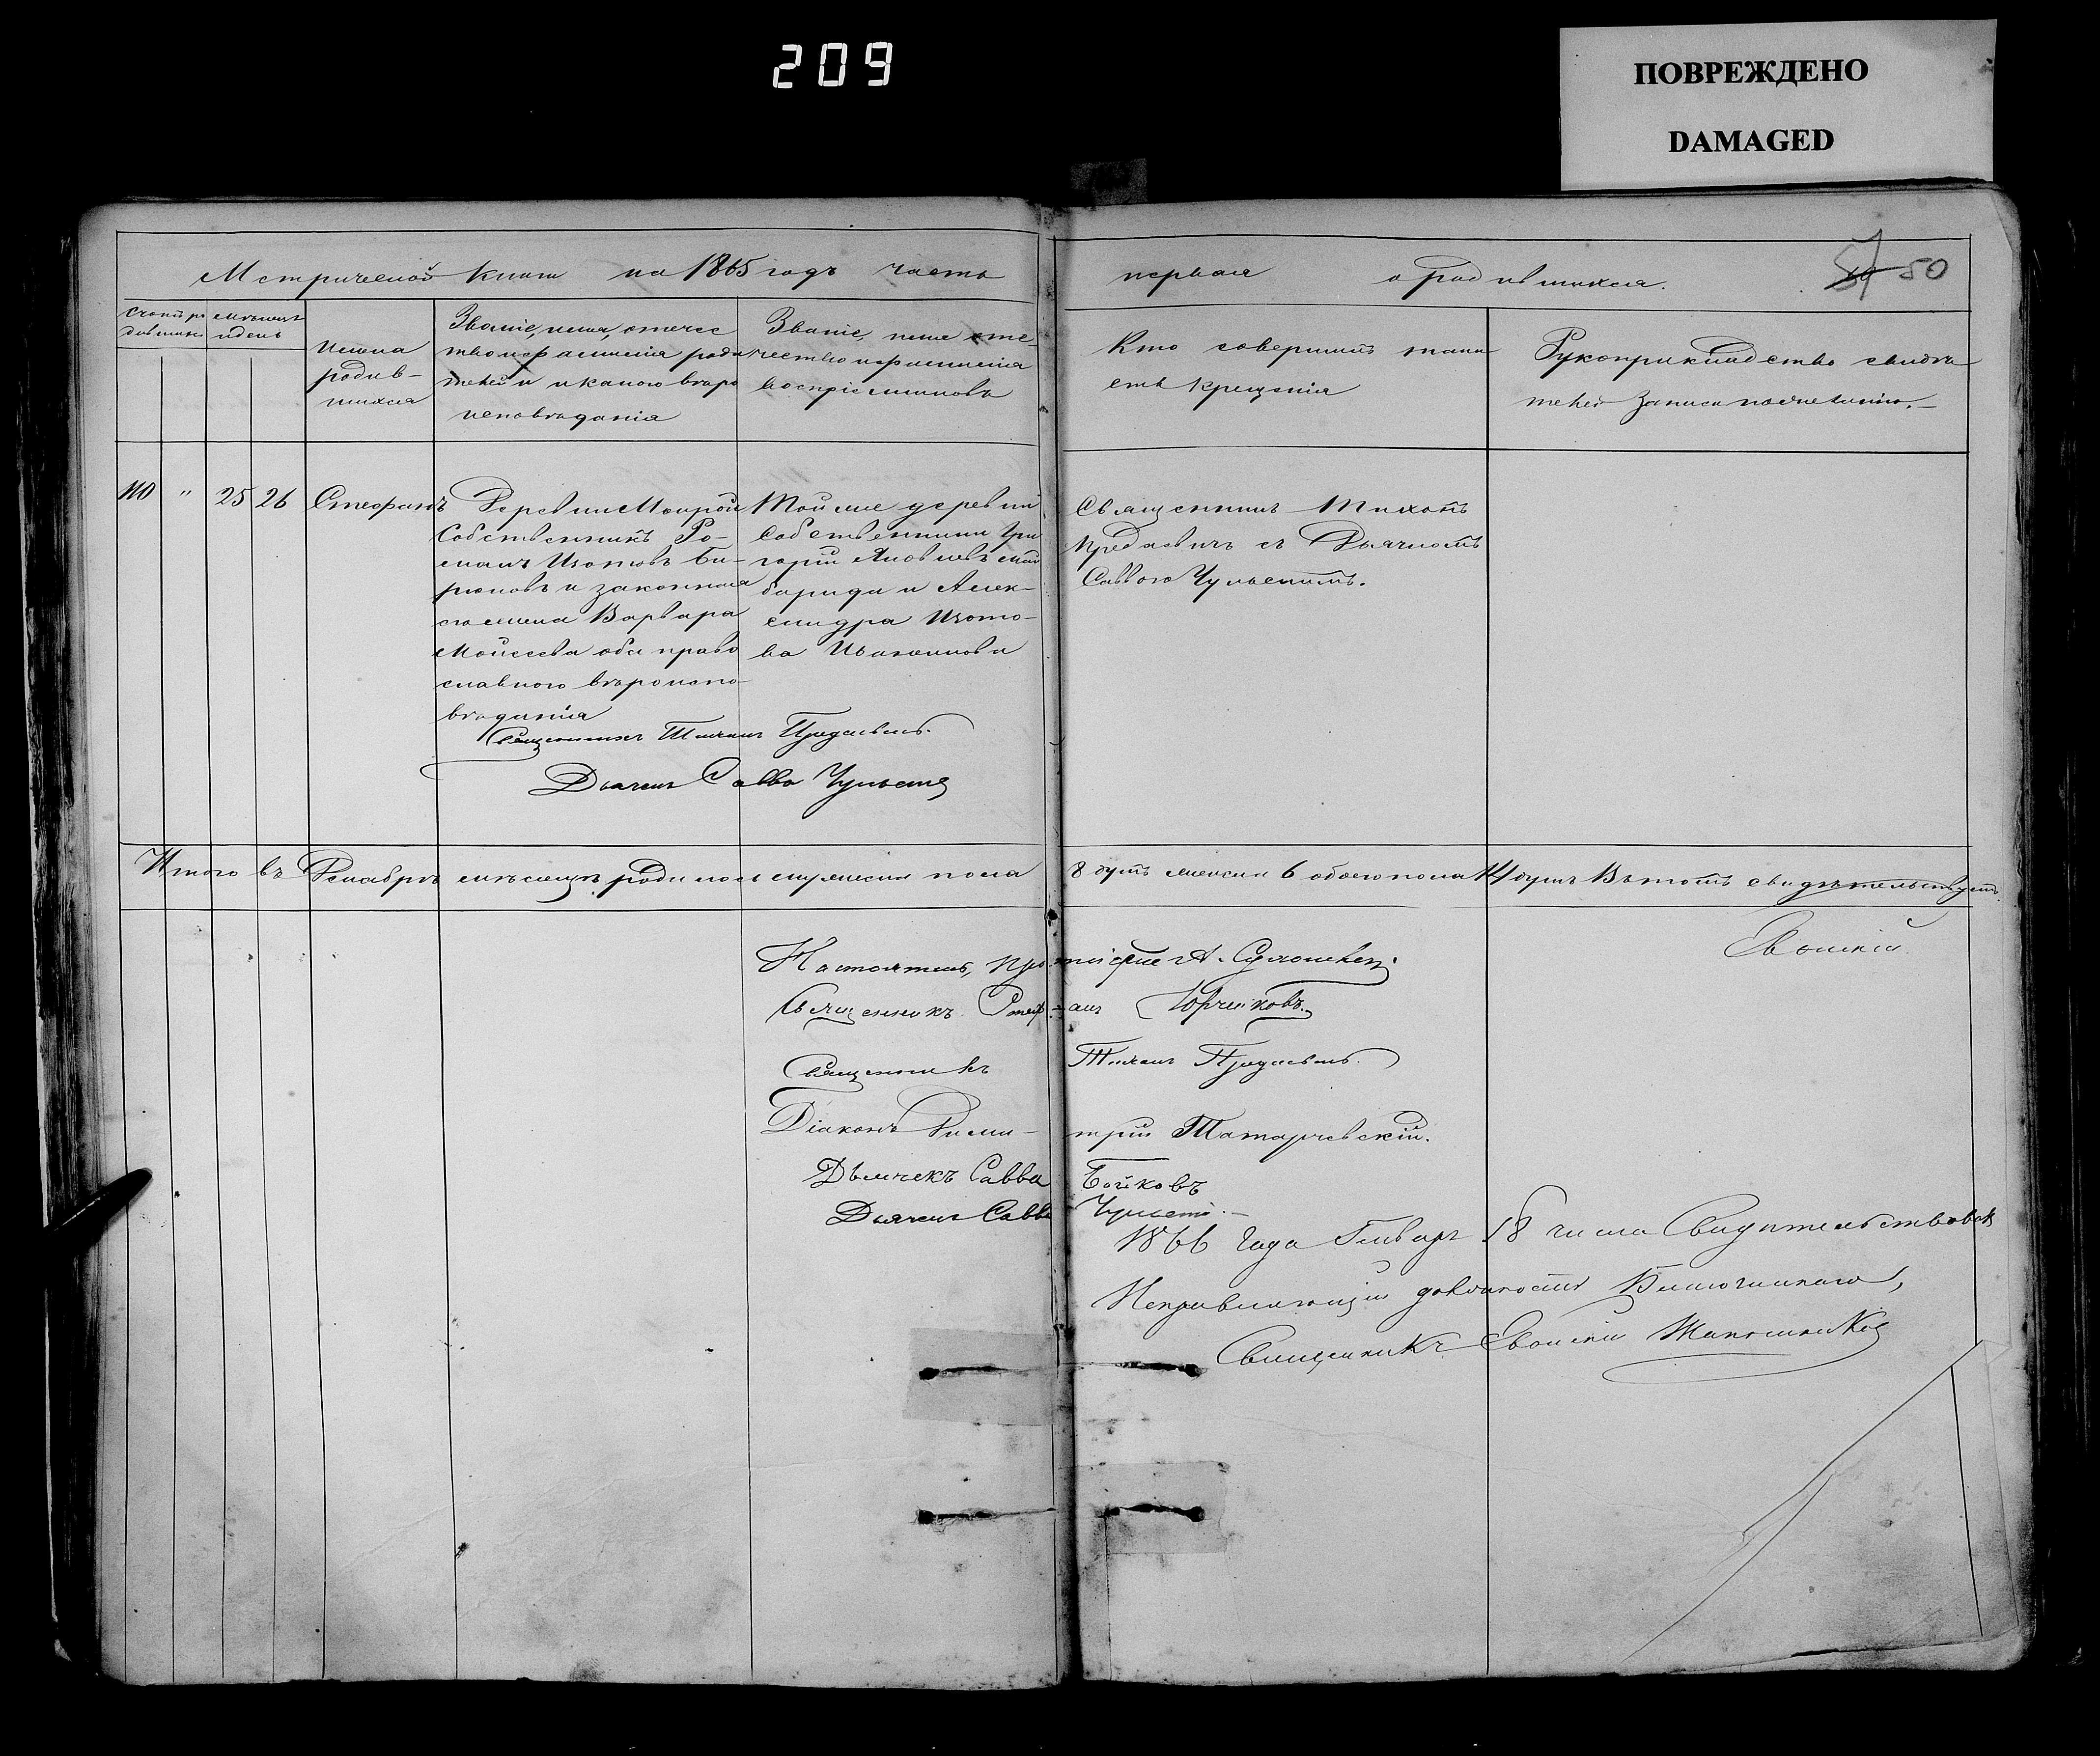 209
ПОВРЕЖДЕНО
DAMAGED
Метрической книги на 1865 годъ часть первая о родившихся. 50
Счетъ ро
дившихъ
месяцъ
и день
Имена
родив-
шихся
Званіе, имя, отчес
тво и фамилія роди
телей и какого веро
исповеданія
Званіе, имя оте-
чество и фамилія
воспріемниковъ
Кто совершилъ таин
ств крещенія
Рукоприкладство свидете
телей записи по желанію.
110 " 25 26 Стефанъ
Деревни Мокрой
Собственникъ Ро-
манъ Изотовъ Би-
рюковъ и законная
его жена Варвара
Моисеева оба право
славного вероиспо-
веданія
Той же деревни
Собственники Гри
горій Яковлевъ
и Алек-
сандра Изото-
ва
Священникъ Тихонъ
съ Дьячкомъ
Саввою
Священникъ Тихонъ
Дьячекъ Савва
Итого въ Декабре месяце родилось мужеска пола 8 душъ женска 6 обоего пола 14 душъ Въ томъ свидетельствуетъ
Настоятель, протоіерей А.
Священникъ Стеф-анъ Юрчиковъ.
Священникъ Тихонъ
Діаконъ Дими-трій Татарчевскій.
Дьячекъ Савва Бойковъ
Дьячекъ Савва
1866 года Генваря 18 числа Свидетельствовалъ
Исправляющій должность Благочиннаго,
Священникъ